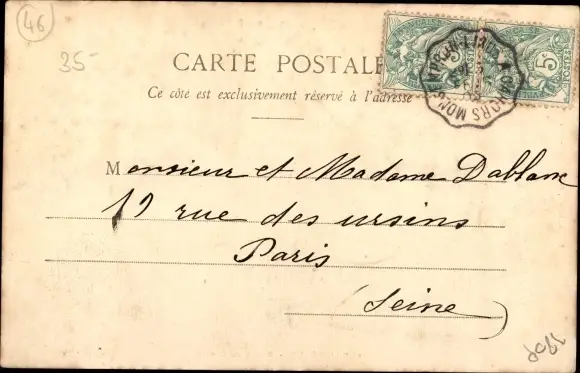 46
35-
CARTE POSTALE
Ce côté est exclusivement réservé à l'adresse
5
Monsieur et Madame Dablanc
19 rue des ursins
Paris
Seine)